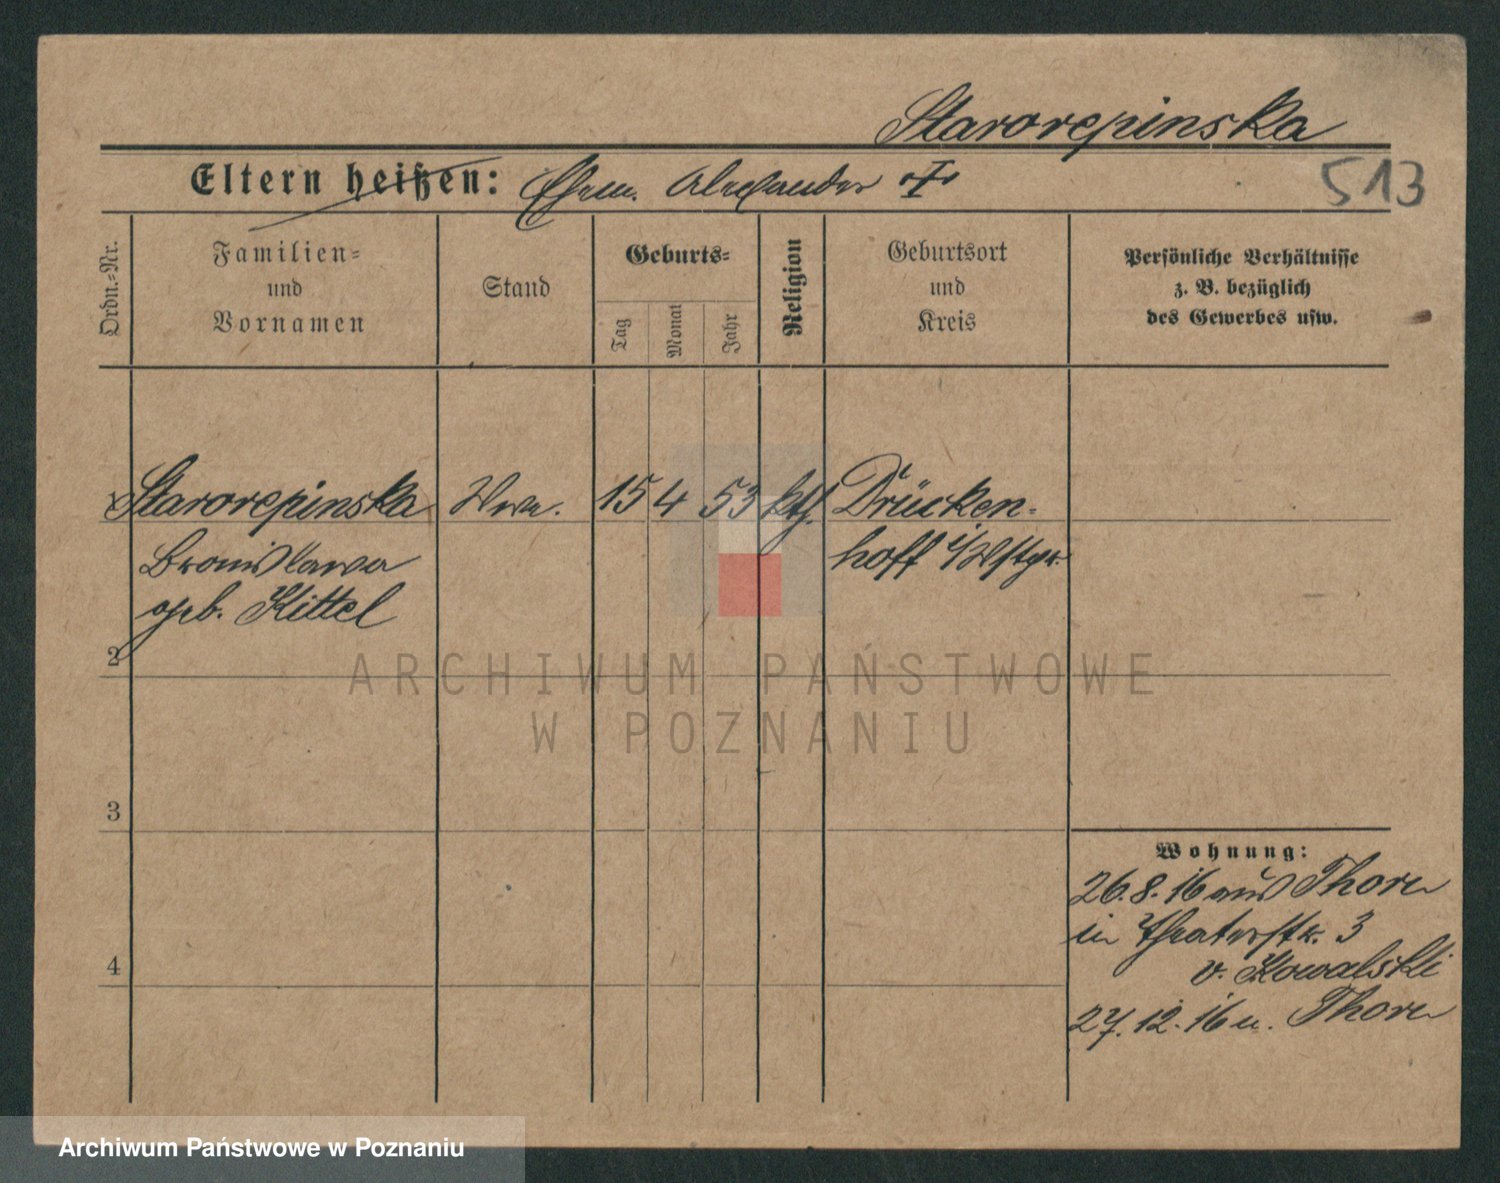 Starorepinska
513
Eltern heißen: Ehem. Alexander †
Ordn.-Nr.
Familien-
und
Vornamen
Stand
Geburts-
Tag
Monat
Jahr
Religion
Geburtsort
und
Kreis
Persönliche Verhältnisse
z. B. bezüglich
des Gewerbes usw.
Starorepinska Wwe. 15 4 53 kth. Drücken-
Bronislawa hoff i/Wstpr.
geb. Kittel
2
ARCHIWUM PAŃSTWOWE
W POZNANIU
3
Wohnung:
26.8.16 aus Thorn
in Theaterstr. 3
v. Kowalski
4
27.12.16 n. Thorn
Archiwum Państwowe w Poznaniu